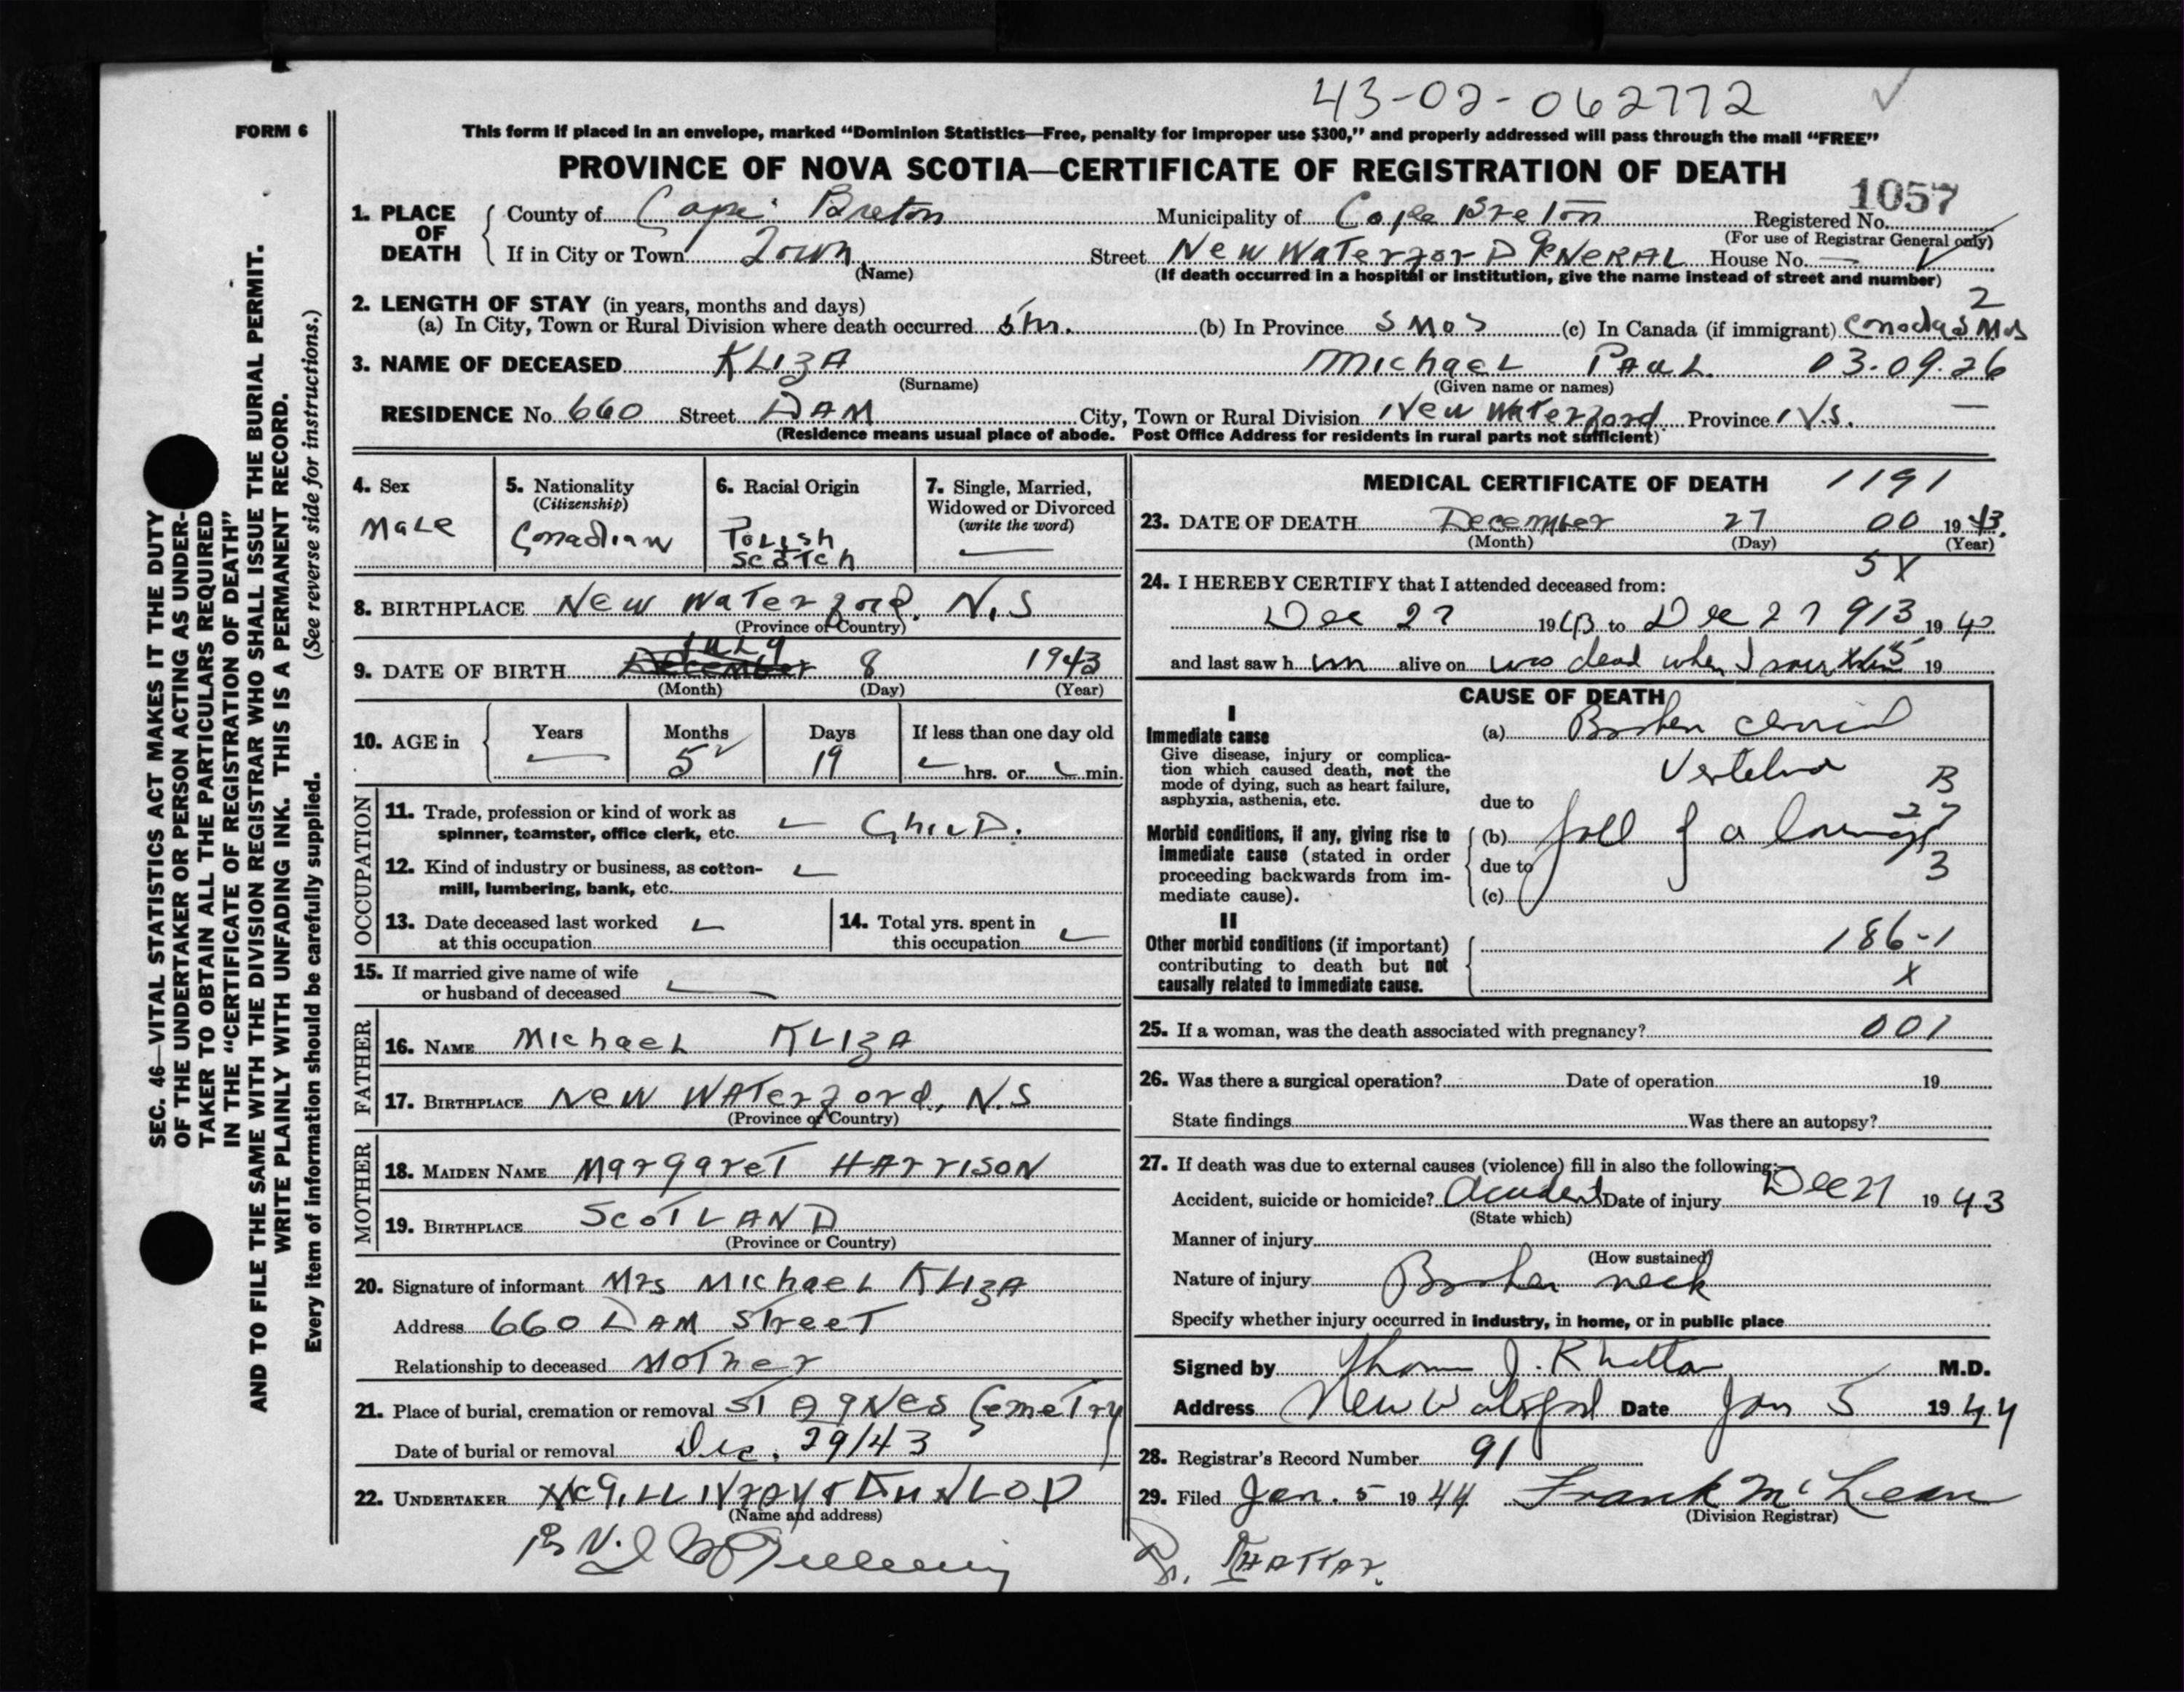 43-02-062772
FORM 6
This form if placed in an envelope, marked “Dominion Statistics—Free, penalty for improper use $300,” and properly addressed will pass through the mail “FREE”
PROVINCE OF NOVA SCOTIA—CERTIFICATE OF REGISTRATION OF DEATH
1057
1. PLACE OF DEATH County of Cape Breton Municipality of Cape Breton Registered No.
(For use of Registrar General only)
If in City or Town Town Street New Waterford General House No. —
(Name) (If death occurred in a hospital or institution, give the name instead of street and number)
2. LENGTH OF STAY (in years, months and days) 2
(a) In City, Town or Rural Division where death occurred 5m. (b) In Province 5 Mos (c) In Canada (if immigrant) Canada 5 Mos
3. NAME OF DECEASED KLIZA Michael Paul 03.09.26
(Surname) (Given name or names)
RESIDENCE No. 660 Street DAM City, Town or Rural Division New Waterford Province N.S. —
(Residence means usual place of abode. Post Office Address for residents in rural parts not sufficient)
4. Sex Male
5. Nationality (Citizenship) Canadian
6. Racial Origin Polish Scotch
7. Single, Married, Widowed or Divorced (write the word) —
8. BIRTHPLACE New Waterford, N.S
(Province or Country)
9. DATE OF BIRTH December July 8 1943
(Month) (Day) (Year)
10. AGE in Years — Months 5 Days 19 If less than one day old hrs. or min.
OCCUPATION
11. Trade, profession or kind of work as spinner, teamster, office clerk, etc. Child.
12. Kind of industry or business, as cotton-mill, lumbering, bank, etc.
13. Date deceased last worked at this occupation
14. Total yrs. spent in this occupation
15. If married give name of wife or husband of deceased
FATHER
16. NAME Michael KLIZA
17. BIRTHPLACE New Waterford, N.S
(Province or Country)
MOTHER
18. MAIDEN NAME Margaret Harrison
19. BIRTHPLACE SCOTLAND
(Province or Country)
20. Signature of informant Mrs Michael KLIZA
Address 660 DAM Street
Relationship to deceased Mother
21. Place of burial, cremation or removal St Agnes Cemetry
Date of burial or removal Dec. 29/43
22. UNDERTAKER
(Name and address)
MEDICAL CERTIFICATE OF DEATH 1191
23. DATE OF DEATH December 27 00 1943.
(Month) (Day) (Year)
5X
24. I HEREBY CERTIFY that I attended deceased from:
Dec 27 1943 to Dec 27 913 1943
and last saw h im alive on was dead when I saw him 19
CAUSE OF DEATH
I
Immediate cause
Give disease, injury or complication which caused death, not the mode of dying, such as heart failure, asphyxia, asthenia, etc.
(a) Broken cervical
Vertebra B
due to 27
Morbid conditions, if any, giving rise to immediate cause (stated in order proceeding backwards from immediate cause).
(b) fall of a lounge
due to 3
(c)
II
Other morbid conditions (if important) contributing to death but not causally related to immediate cause.
186-1
X
25. If a woman, was the death associated with pregnancy? 001
26. Was there a surgical operation? Date of operation 19
State findings Was there an autopsy?
27. If death was due to external causes (violence) fill in also the following:—
Accident, suicide or homicide? Accident Date of injury Dec 27 1943
(State which)
Manner of injury
(How sustained)
Nature of injury Broken neck
Specify whether injury occurred in industry, in home, or in public place
Signed by Thomas J. Khattar M.D.
Address New Waterford Date Jan 5 1944
28. Registrar's Record Number 91
29. Filed Jan. 5 1944 Frank McLean
(Division Registrar)
Dr. Khattar.
SEC. 46—VITAL STATISTICS ACT MAKES IT THE DUTY
OF THE UNDERTAKER OR PERSON ACTING AS UNDER-
TAKER TO OBTAIN ALL THE PARTICULARS REQUIRED
IN THE “CERTIFICATE OF REGISTRATION OF DEATH”
AND TO FILE THE SAME WITH THE DIVISION REGISTRAR WHO SHALL ISSUE THE BURIAL PERMIT.
WRITE PLAINLY WITH UNFADING INK. THIS IS A PERMANENT RECORD.
Every item of information should be carefully supplied. (See reverse side for instructions.)